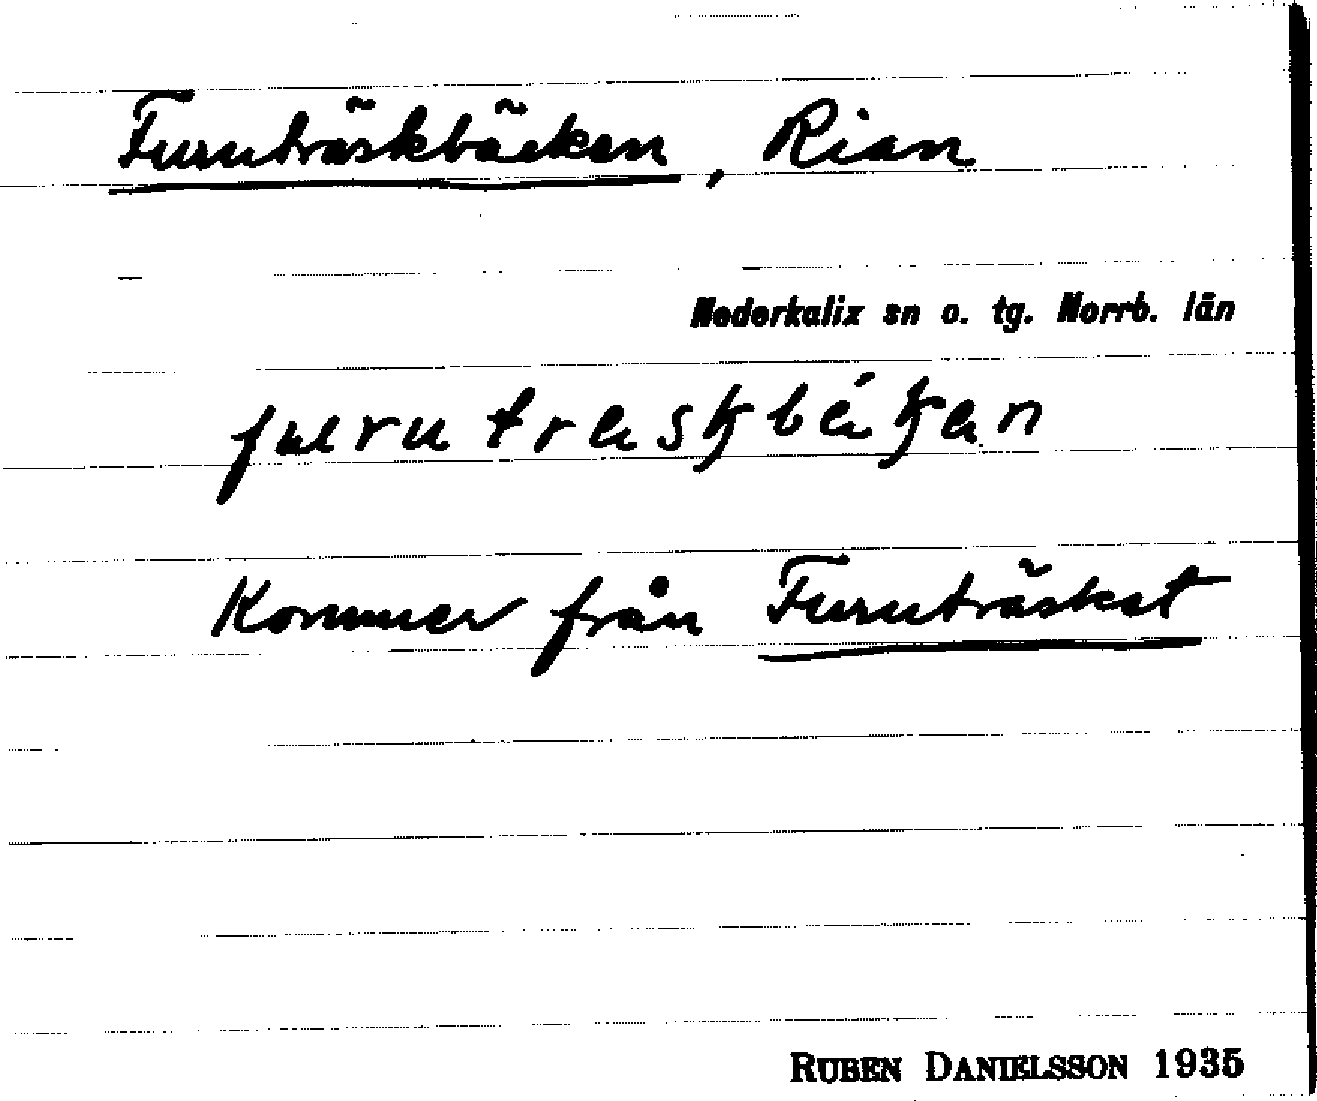 Furuträskbäcken, Rian
Nederkalix sn o. tg. Norrb. län
Kommer från Furuträsket
RUBEN DANIELSSON 1935